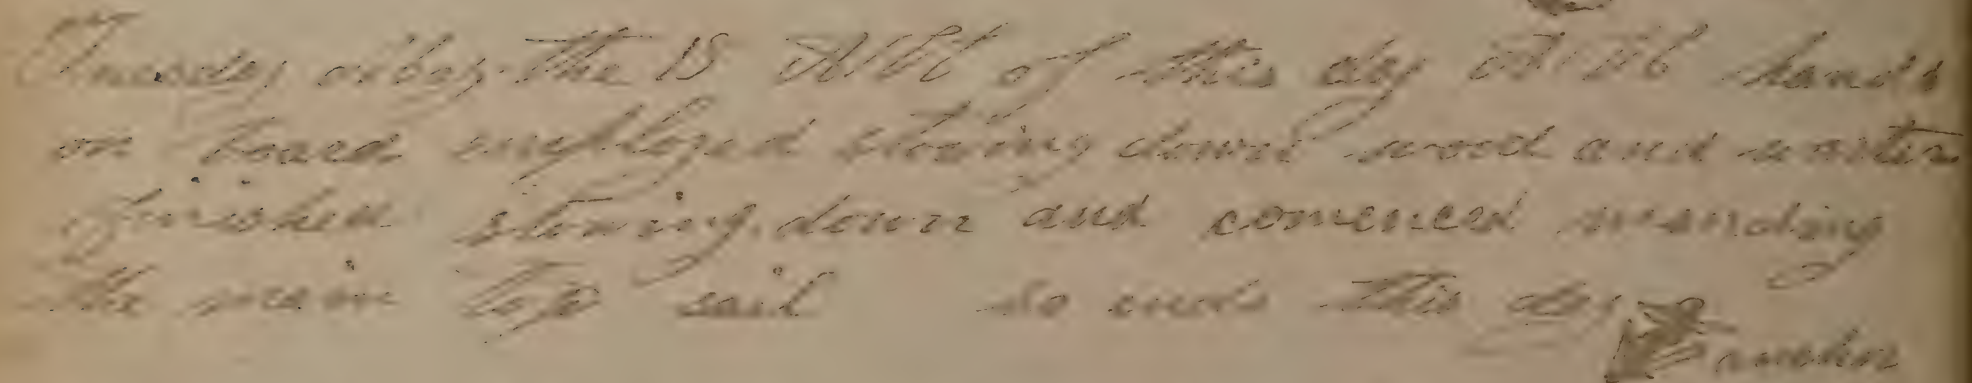 Tuesday the 18 All of this day All hands
on board employed stowing down wood and water
finished stowing down and comenced mending
the main top sail so ends this day